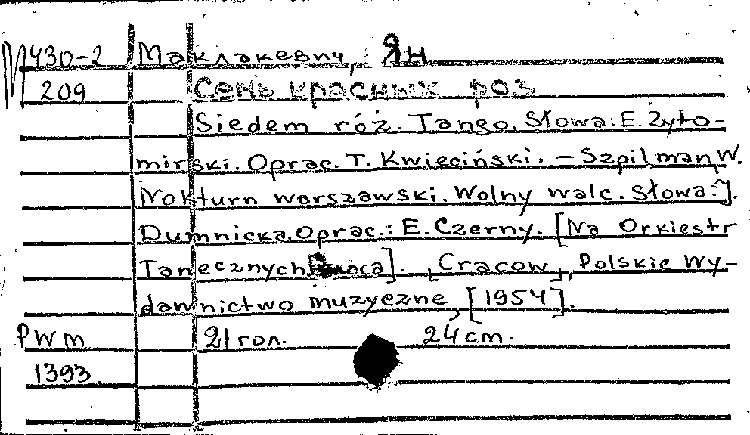 М430-2 Маклакевич, Ян
209 Семь красных роз
Siedem róż. Tango. Słowa: E. Żyto-
mirski. Oprac. T. Kwieciński. – Szpilman W.
Nokturn warszawski. Wolny walc. Słowa: J.
Dumnicka. Oprac.: E. Czerny. [Na Orkiestr
Tanecznych]. Cracow, Polskie Wy-
dawnictwo muzyczne, [1954].
PWM 21 гол. 24 cm.
1393